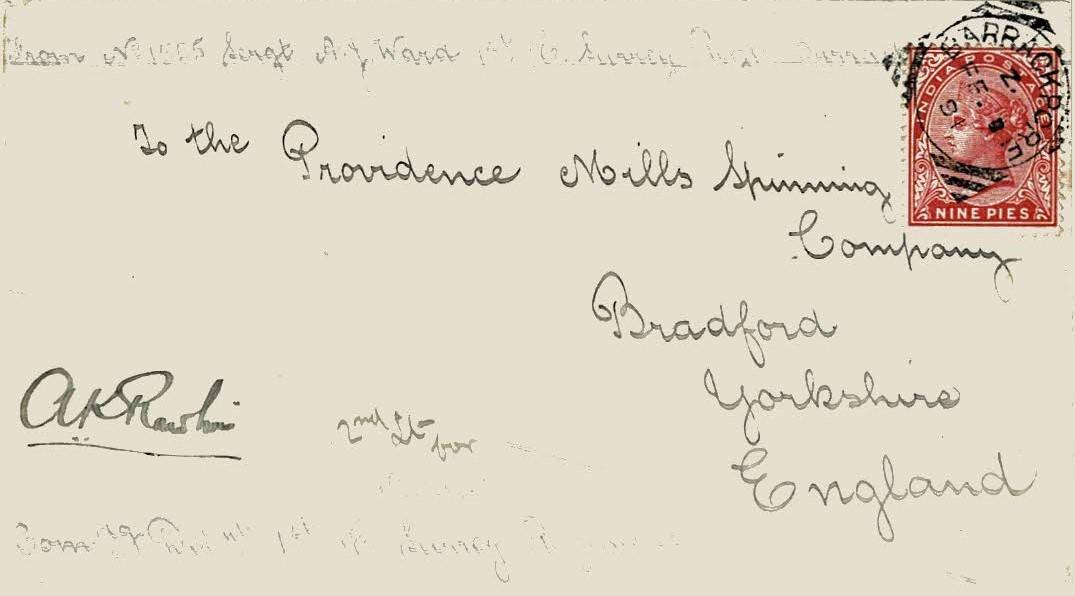 From No 1555 Sergt A J Ward 1st E. Surrey Regt
BARRACKPORE
INDIA POSTAGE
NINE PIES
To the Providence Mills Spinning
Company
Bradford
Yorkshire
England
2nd Lt
for
Comdg 1st E Surrey